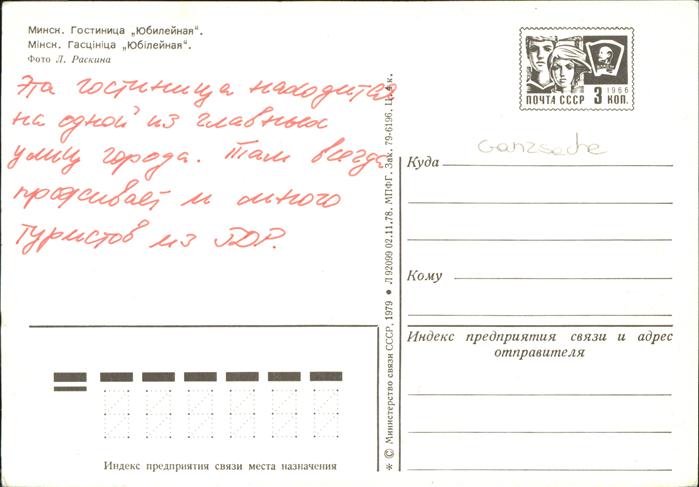 Минск. Гостиница „Юбилейная“.
Мінск. Гасцініца „Юбілейная“.
Фото Л. Раскина
Эта гостиница находится
на одной из главных
улиц города. Там всегда
проживает и много
туристов из ГДР.
ПОЧТА СССР 3 КОП.
1966
ВЛКСМ
Ganzsache
Куда
Кому
Индекс предприятия связи и адрес
отправителя
Индекс предприятия связи места назначения
* © Министерство связи СССР, 1979 • Л 92099 02.11.78. МПФГ. Зак. 79-6196. Ц. 4 к.